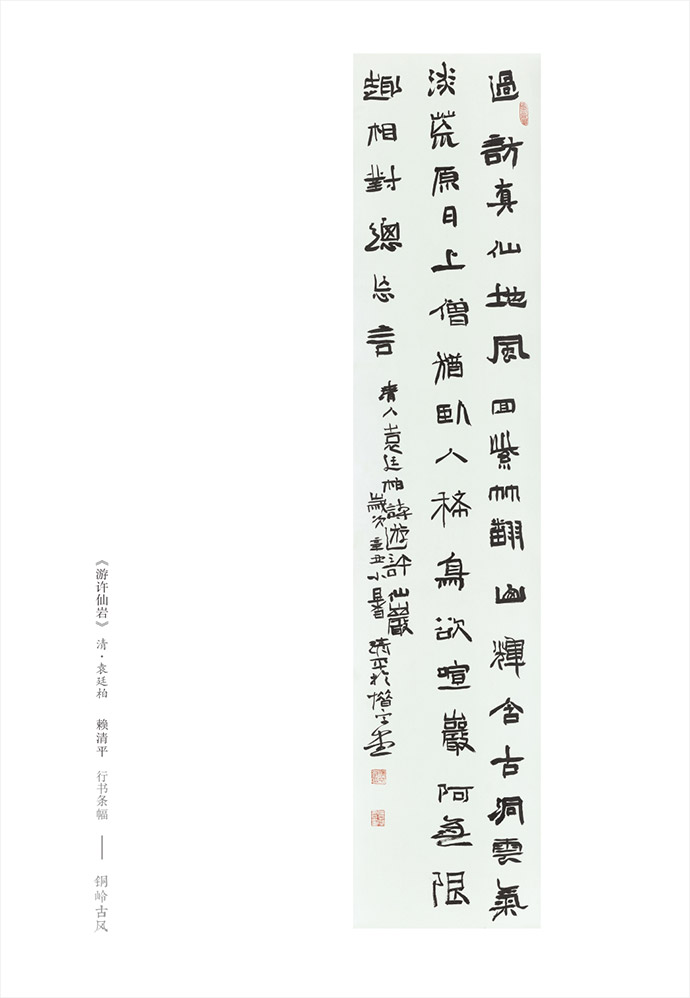 過訪真仙地風回紫竹翻山輝含古洞雲氣
淡荒原日上僧猶臥人稀鳥欲喧巖阿無限
趣相對總忘言 清人袁廷柏詩遊許仙巖
歲次辛丑小暑清平於
《游许仙岩》 清·袁廷柏 赖清平 行书条幅 —— 铜岭古风